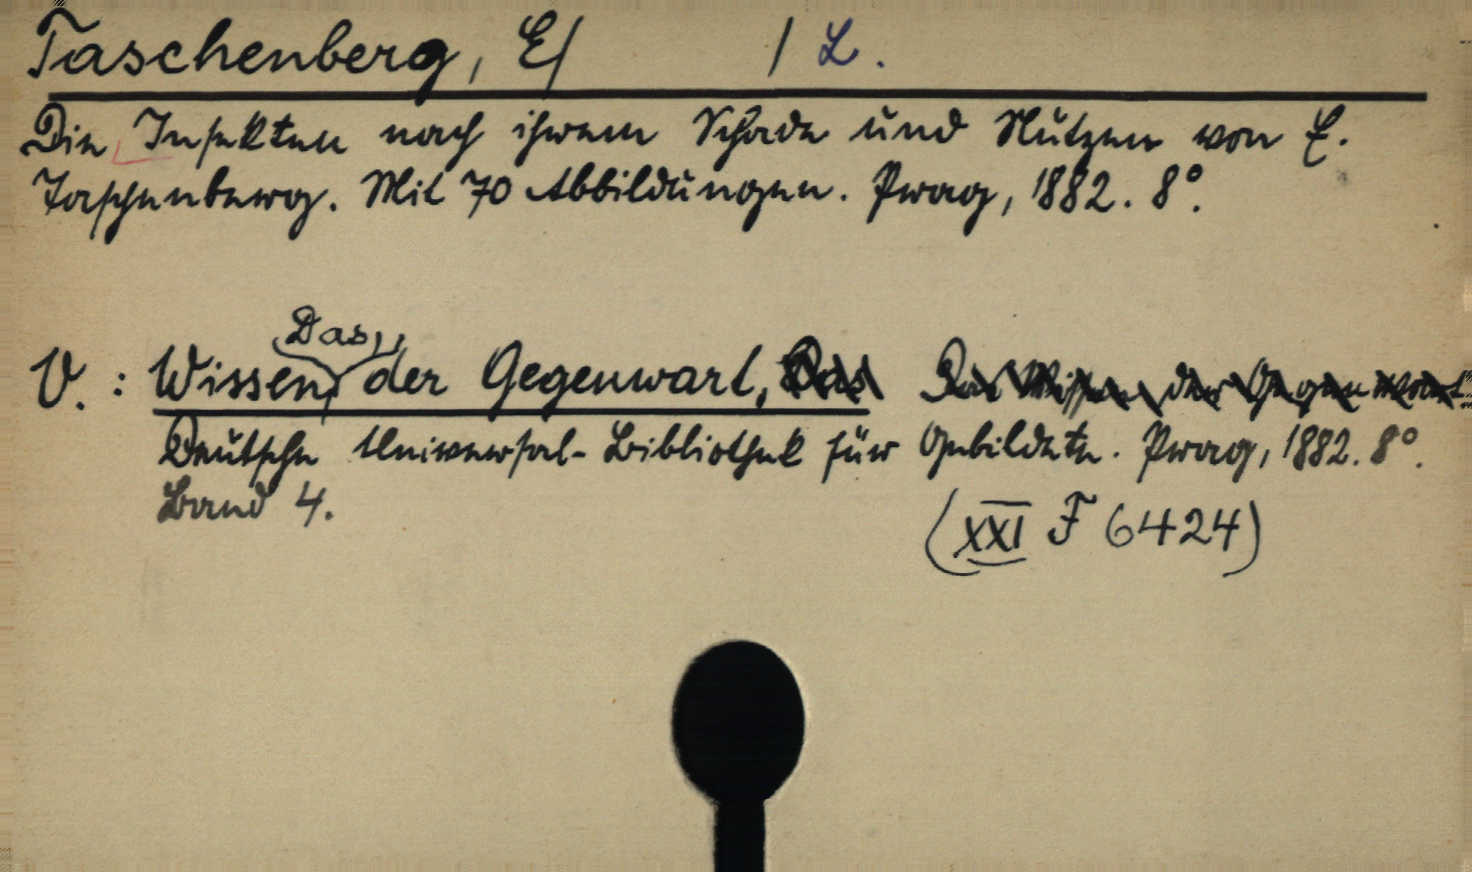 Taschenberg, E/ / L.
Die Insekten nach ihrem Schade und Nutzen von E.
Taschenberg. Mit 70 Abbildungen. Prag, 1882. 8°.
Das
V. : Wissen, der Gegenwart, Das Das Wissen der Gegenwart.
Deutsche Universal-Bibliothek für Gebildete. Prag, 1882. 8°.
Band 4.
(XXI F 6424)